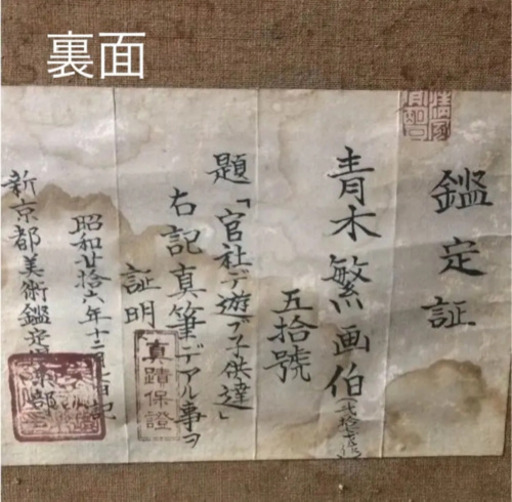 裏面
鑑定証
青木繁画伯
五拾號
題「官社デ遊ブ子供達」
右記真筆デアル事ヲ
証明
真蹟保證
昭和廿拾六年十二月 日記
新京都美術鑑定 部